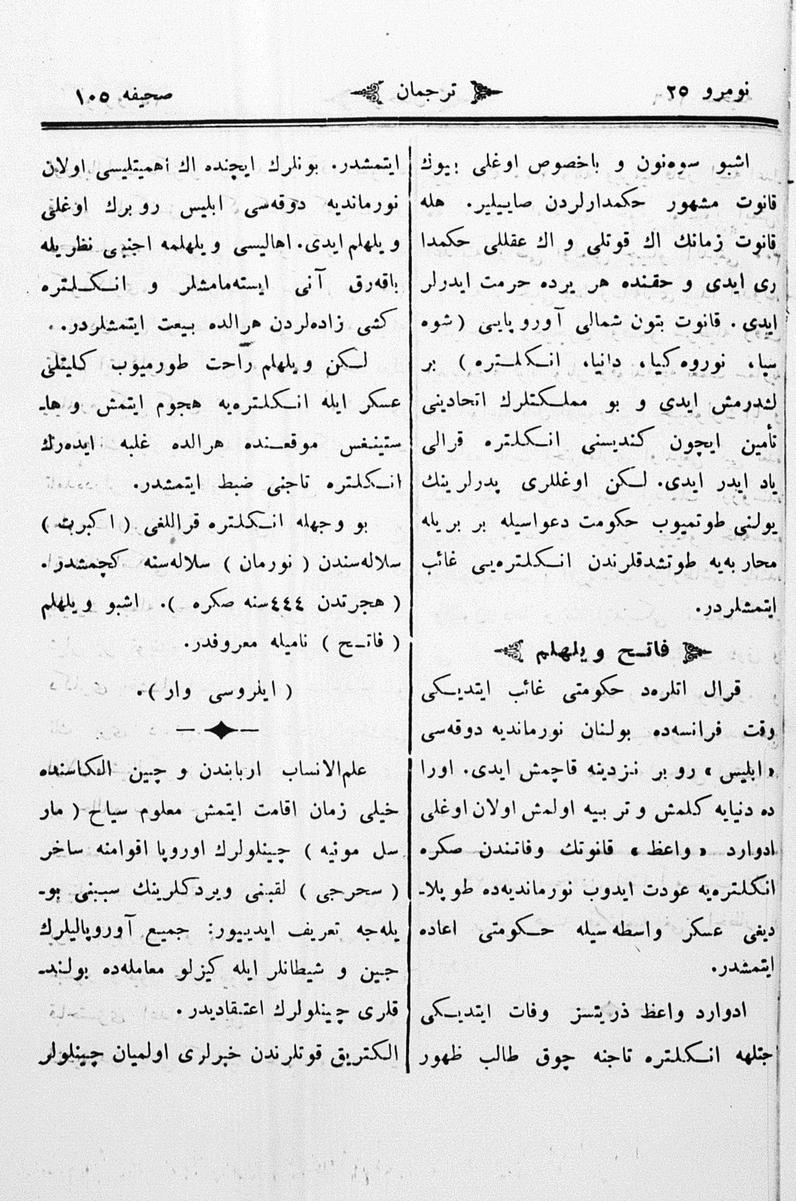 نومرو ٢٥
ترجمان
صحيفه ١٠٥
اشبو سوه‌نون و باخصوص اوغلی بيوك
قانوت مشهور حكمدارلردن صاييلير. هله
قانوت زمانك اك قوتلی و اك عقللی حكمدا
ری ايدی و حقنده هر يرده حرمت ايدرلر
ايدی. قانوت بتون شمالی آوروپایی (شوه
سيا، نوروه‌كيا، دانيا، انكلتره) بر
لشدرمش ايدی و بو مملكتلرك اتحادينی
تأمين ايچون كنديسنی انكلتره قرالی
ياد ايدر ايدی. لكن اوغللری پدرلرينك
يولنی طوتميوب حكومت دعواسيله بر بريله
محاربه‌يه طوتشدقلرندن انكلتره‌يی غائب
ايتمشلردر.
فاتح ويلهلم
قرال اتلره‌د حكومتی غائب ايتديكی
وقت فرانسه‌ده بولنان نورمانديه دوقه‌سی
«ابليس» روبر نزدينه قاچمش ايدی. اورا
ده دنيايه كلمش و تربيه اولمش اولان اوغلی
ادوارد «واعظ» قانوتك وفاتندن صكره
انكلتره‌يه عودت ايدوب نورمانديه‌ده طوپلا‌ـ
ديغی عسكر واسطه‌سيله حكومتی اعاده
ايتمشدر.
ادوارد واعظ ذريتسز وفات ايتديكی
جتلهه انكلتره تاجنه چوق طالب ظهور
ايتمشدر. بونلرك ايچنده اك اهميتليسی اولان
نورمانديه دوقه‌سی ابليس روبرك اوغلی
ويلهلم ايدی. اهاليسی ويلهلمه اجنبی نظريله
باقه‌رق آنی ايسته‌مامشلر و انكلتره
كشی زاده‌لردن هرالده بيعت ايتمشلردر.
لكن ويلهلم راحت طورميوب كليتلی
عسكر ايله انكلتره‌يه هجوم ايتمش و ها‌ـ
ستينغس موقعنده هرالده غلبه ايده‌رك
انكلتره تاجنی ضبط ايتمشدر.
بو وجهله انكلتره قراللغی (اكبرت)
سلاله‌سندن (نورمان) سلاله‌سنه كچمشدر.
(هجرتدن ٤٤٤ سنه صكره). اشبو ويلهلم
(فاتح) ناميله معروفدر.
(ايلروسی وار).
علم‌الانساب اربابندن و چين الكاسنده
خيلی زمان اقامت ايتمش معلوم سياح (مار
سل مونيه) چينلولرك اوروپا اقوامنه ساخر
(سحرجی) لقبنی ويردكلرينك سببنی بو‌ـ
يله‌جه تعريف ايدييور: جميع آوروپاليلرك
جين و شيطانلر ايله كيزلو معامله‌ده بولند‌ـ
قلری چينلولرك اعتقاديدر.
الكتريق قوتلرندن خبرلری اولميان چينلولر